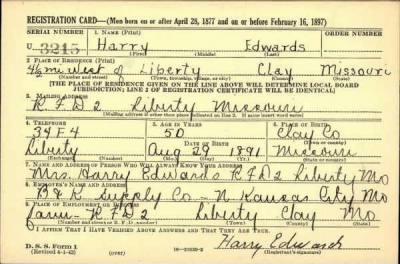 REGISTRATION CARD—(Men born on or after April 28, 1877 and on or before February 16, 1897)
SERIAL NUMBER 1. NAME (Print) ORDER NUMBER
U 3215 Harry Edwards
(First) (Middle) (Last)
2. PLACE OF RESIDENCE (Print)
4½ mi West of Liberty Clay Missouri
(Number and street) (Town, township, village, or city) (County) (State)
[THE PLACE OF RESIDENCE GIVEN ON THE LINE ABOVE WILL DETERMINE LOCAL BOARD
JURISDICTION; LINE 2 OF REGISTRATION CERTIFICATE WILL BE IDENTICAL]
3. MAILING ADDRESS
R.F.D 2 Liberty Missouri
[Mailing address if other than place indicated on line 2. If same insert word same]
4. TELEPHONE 5. AGE IN YEARS 6. PLACE OF BIRTH
34F4 50 Clay Co
DATE OF BIRTH (Town or county)
Liberty Aug 29 1891 Missouri
(Exchange) (Number) (Mo.) (Day) (Yr.) (State or country)
7. NAME AND ADDRESS OF PERSON WHO WILL ALWAYS KNOW YOUR ADDRESS
Mrs. Harry Edwards R.F.D 2 Liberty Mo
8. EMPLOYER'S NAME AND ADDRESS
Supply Co - N Kansas City Mo
9. PLACE OF EMPLOYMENT OR BUSINESS
Farm - R.F.D 2 Liberty Clay Mo
(Number and street or R. F. D. number) (Town) (County) (State)
I AFFIRM THAT I HAVE VERIFIED ABOVE ANSWERS AND THAT THEY ARE TRUE.
D. S. S. Form 1 Harry Edwards
(Revised 4-1-42) (over) (Registrant's signature)